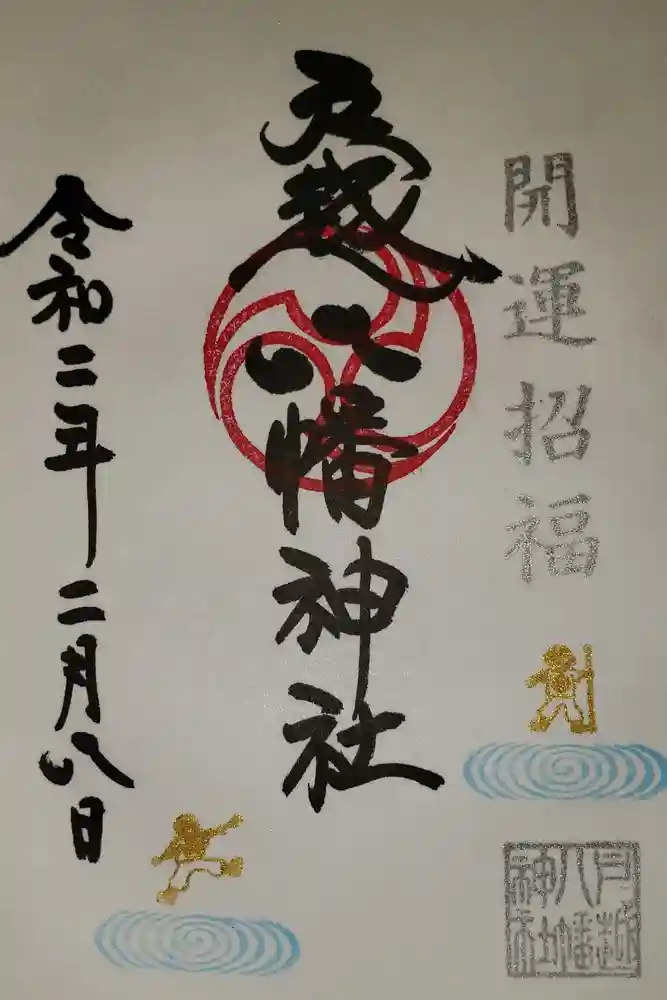 開運招福
戸越八幡神社
令和二年二月八日
戸越
八幡
神社